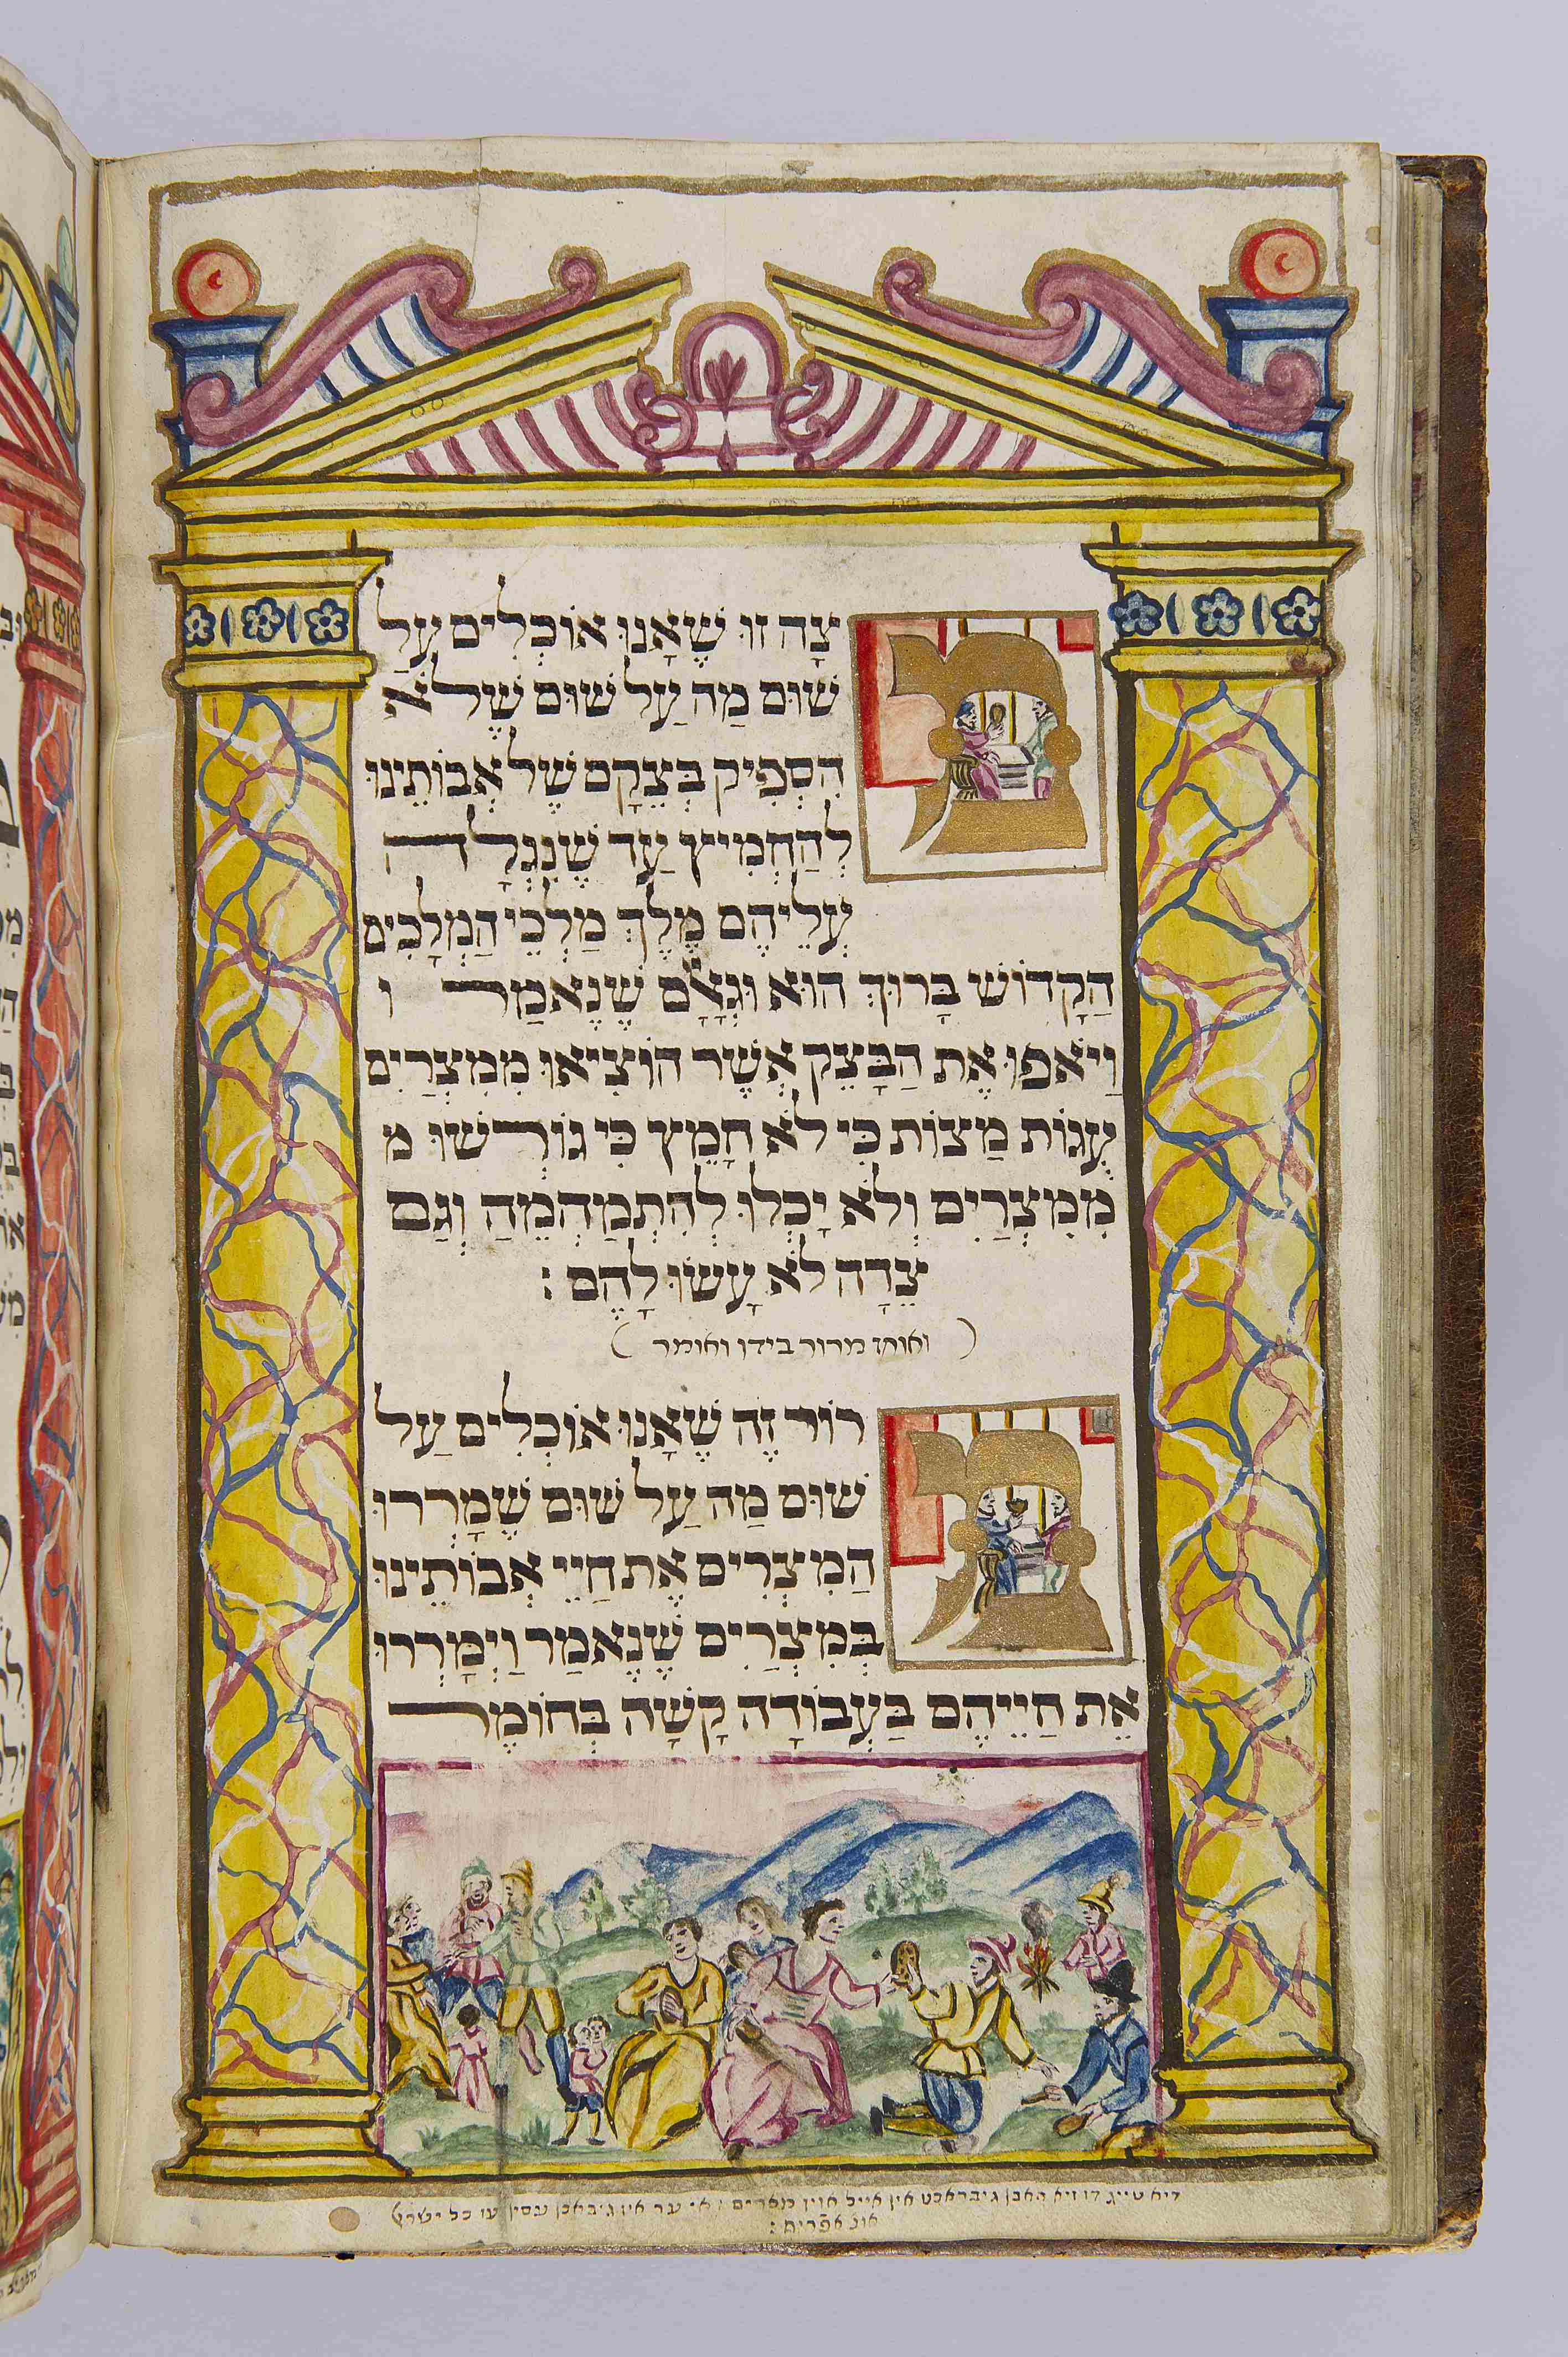 מ
צָה זוּ שֶׁאָנוּ אוֹכְלִים עַל
שׁוּם מַה עַל שׁוּם שֶׁלֹא
הִסְפִּיק בְּצֵקָם שֶׁל אֲבוֹתֵינוּ
לְהַחְמִיץ עַד שֶׁנִגְלָה
עֲלֵיהֶם מֶלֶךְ מַלְכֵי הַמְלָכִים
הַקָדוֹשׁ בָּרוּךְ הוּא וּגְאָלָם שֶׁנֶאֱמַר ו
וַיֹאפוּ אֶת הַבָּצֵק אֲשֶׁר הוֹצִיאוּ מִמִצְרַיִם
עֻגוֹת מַצוֹת כִּי לֹא חָמֵץ כִּי גוֹרְשׁוּ מ
מִמִצְרַיִם וְלֹא יָכְלוּ לְהִתְמַהְמֵהַ וְגַם
צֵדָה לֹא עָשׂוּ לָהֶם :
( ואוחז מרור בידו ואומר )
מ
רוֹר זֶה שֶׁאָנוּ אוֹכְלִים עַל
שׁוּם מַה עַל שׁוּם שֶׁמָרְרוּ
הַמִצְרִים אֶת חַיֵי אֲבוֹתֵינוּ
בְּמִצְרַיִם שֶׁנֶאֱמַר וַיְמָרְרוּ
אֶת חַיֵיהֶם בַּעֲבוֹדָה קָשָׁה בְּחוֹמֶר
דיא טייג דו זיא האבן גיבראכט אין אייל אויז מצרים